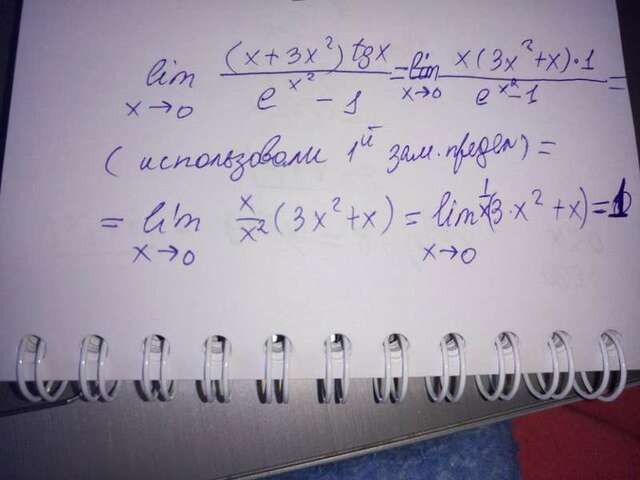 lim x→0 (x+3x²)tgx / e^(x²) - 1 = lim x→0 x(3x²+x)·1 / e^(x²)-1 =
(использовали 1й зам. предел) =
= lim x→0 x/x² (3x²+x) = lim x→0 1/x(3·x²+x) = 1